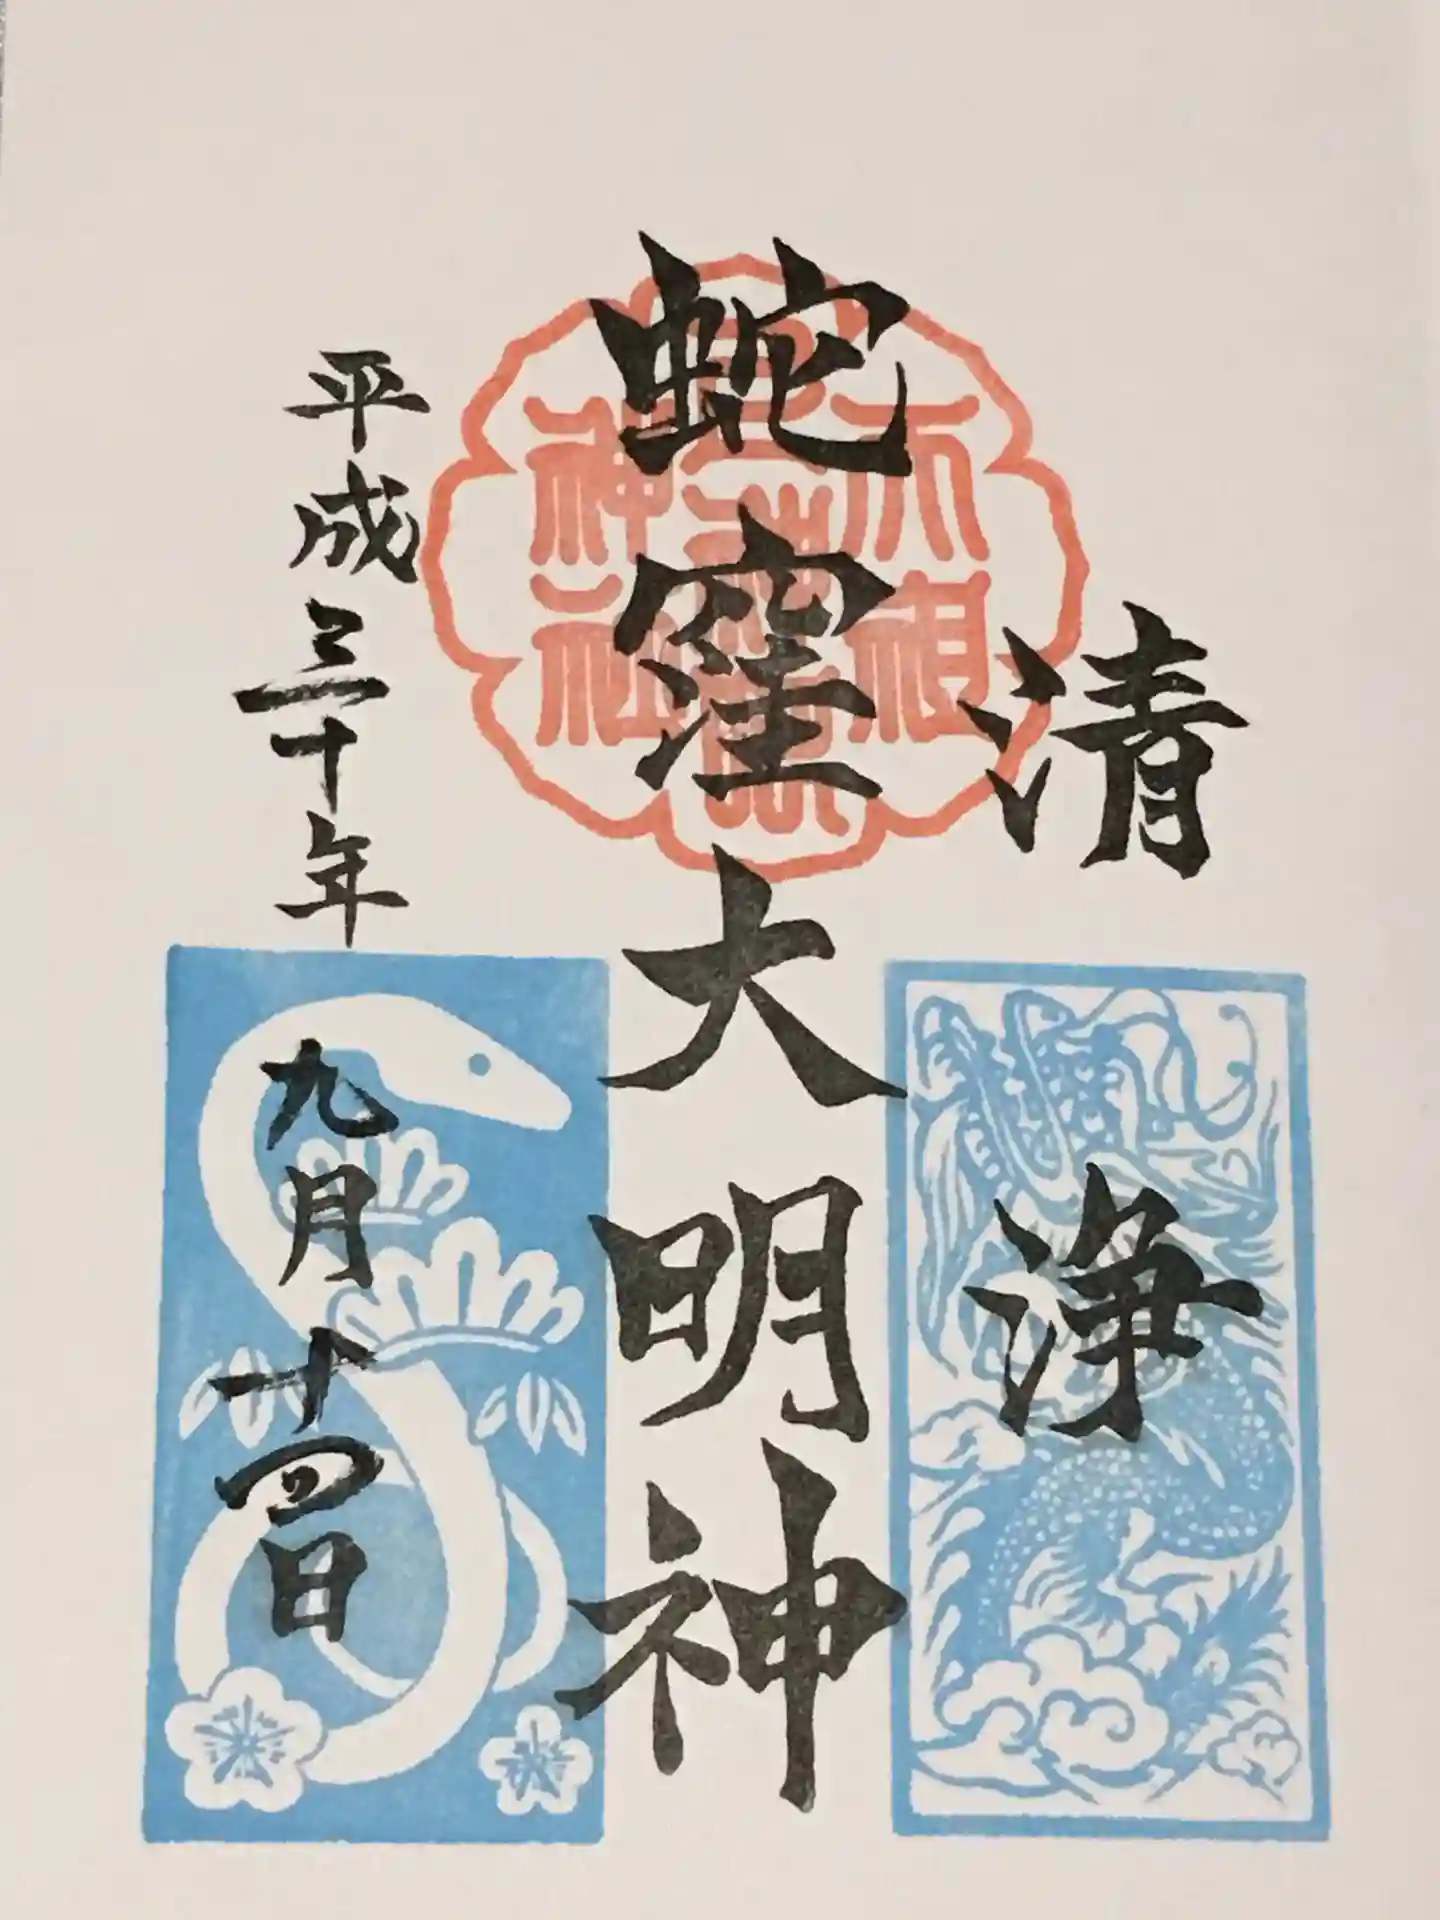 清浄
蛇窪大明神
平成三十年
九月十四日
天祖
神社